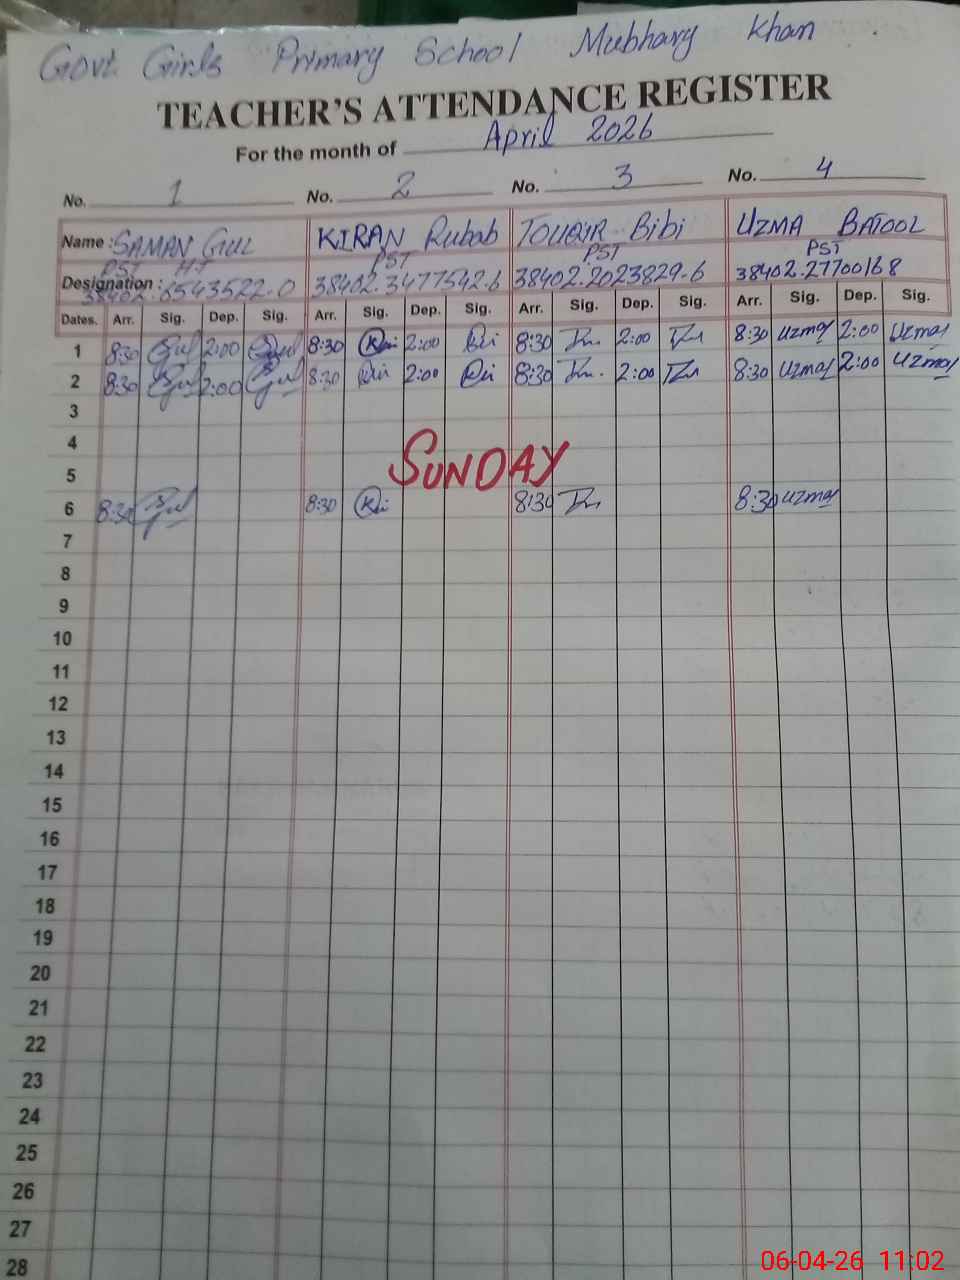 Govt Girls Primary School Mubhary Khan
TEACHER'S ATTENDANCE REGISTER
For the month of April 2026
No. 1 No. 2 No. 3 No. 4
Name : SAMAN GUL KIRAN Rubab TOUQIR Bibi UZMA BATOOL
PST H.T PST PST PST
Designation : 38402.6543522.0 38402.3477542.6 38402.2023829.6 38402.27700168
Dates. Arr. Sig. Dep. Sig. Arr. Sig. Dep. Sig. Arr. Sig. Dep. Sig. Arr. Sig. Dep. Sig.
1 8:30 Gul 2:00 Gul 8:30 2:00 8:30 2:00 8:30 Uzma 2:00 Uzma
2 8:30 Gul 2:00 Gul 8:30 2:00 8:30 2:00 8:30 Uzma 2:00 Uzma
3
4
SUNDAY
5
6 8:30 Gul 8:30 8:30 8:30 Uzma
7
8
9
10
11
12
13
14
15
16
17
18
19
20
21
22
23
24
25
26
27
28
06-04-26 11:02